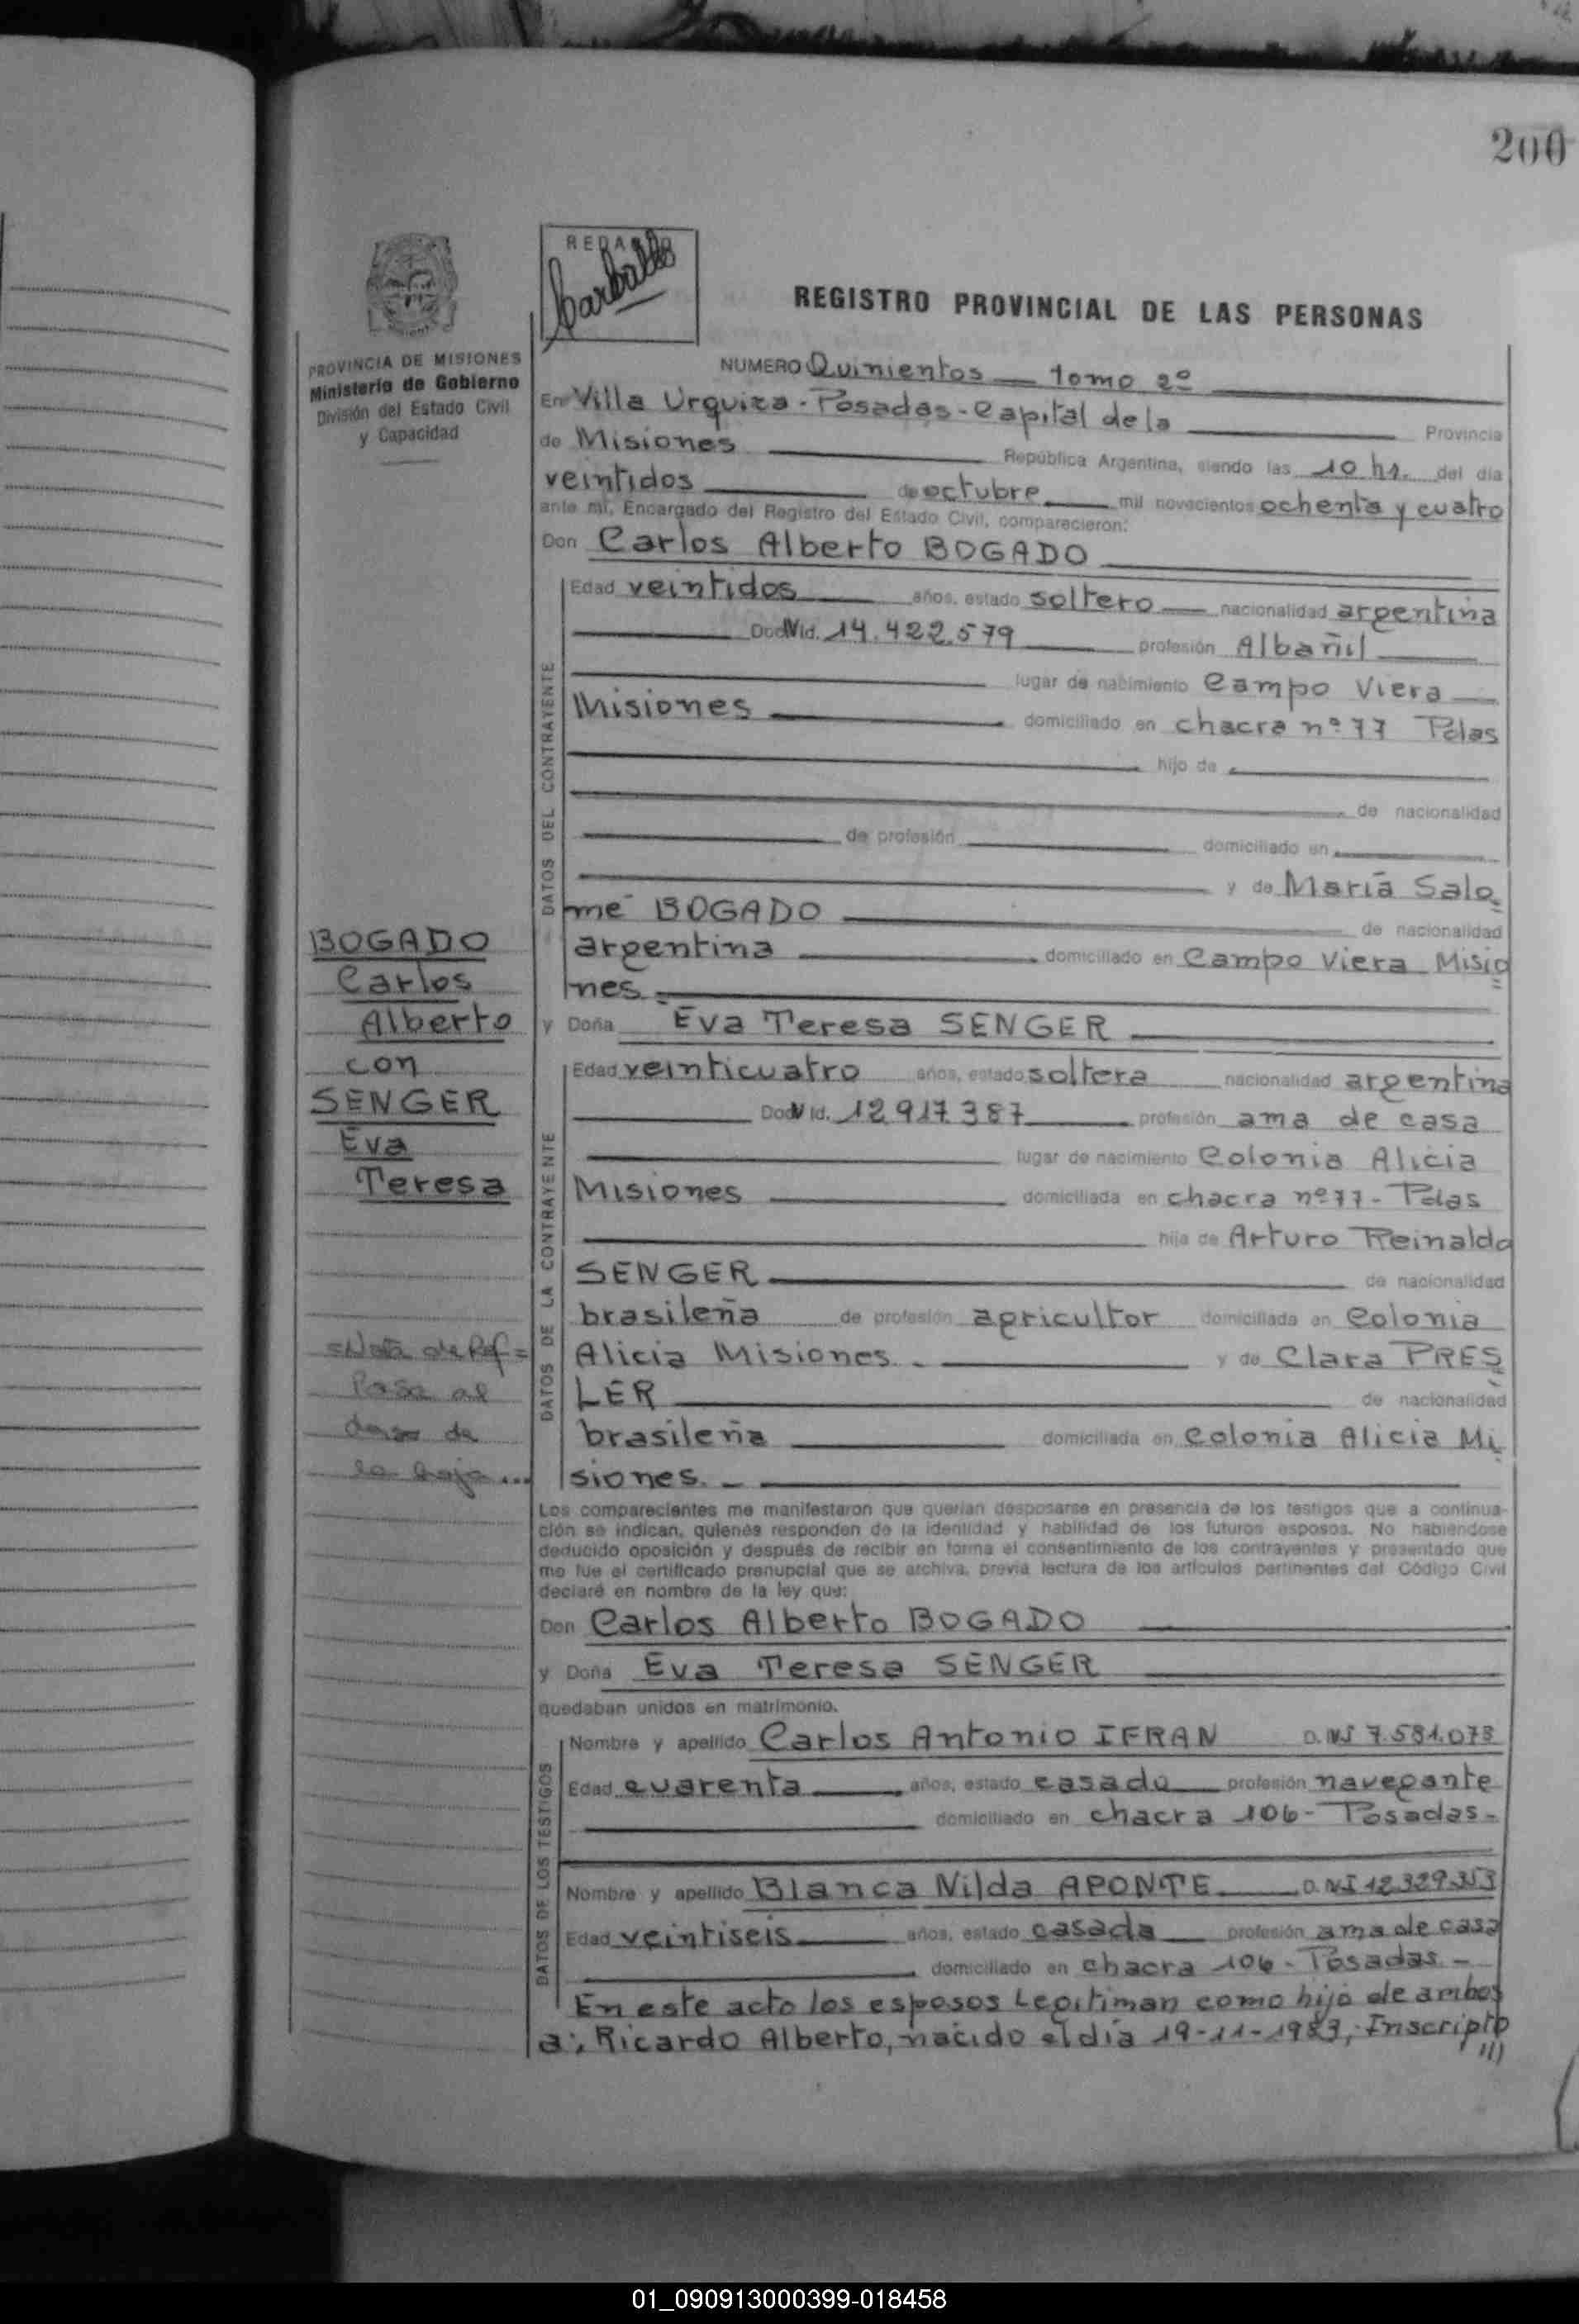 200
REDACTO
Carballo
REGISTRO PROVINCIAL DE LAS PERSONAS
PROVINCIA DE MISIONES
Ministerio de Gobierno
División del Estado Civil
y Capacidad
NUMERO Quinientos — tomo 2º
En Villa Urquiza - Posadas - Capital de la Provincia
de Misiones República Argentina, siendo las 10 hs. del día
veintidos de octubre mil novecientos ochenta y cuatro
ante mí, Encargado del Registro del Estado Civil, comparecieron:
Don Carlos Alberto BOGADO
DATOS DEL CONTRAYENTE
Edad veintidos años, estado soltero nacionalidad argentina
Doc. Id. 14.422.579 profesión Albañil
lugar de nacimiento Campo Viera
Misiones domiciliado en chacra nº 77 Pdas
hijo de
de nacionalidad
de profesión domiciliado en
y de María Salo
mé BOGADO de nacionalidad
argentina domiciliado en Campo Viera Misio
nes.-
y Doña Eva Teresa SENGER
DATOS DE LA CONTRAYENTE
Edad veinticuatro años, estado soltera nacionalidad argentina
Doc. Id. 12.917.387 profesión ama de casa
lugar de nacimiento Colonia Alicia
Misiones domiciliada en chacra nº 77 - Pdas
hija de Arturo Reinaldo
SENGER de nacionalidad
brasileña de profesión agricultor domiciliada en Colonia
Alicia Misiones. - y de Clara PRES
LER de nacionalidad
brasileña domiciliada en Colonia Alicia Mi
siones. -
BOGADO
Carlos
Alberto
con
SENGER
Eva
Teresa
=Nota de Ref=
Pasa al
dorso de
la hoja...
Los comparecientes me manifestaron que querían desposarse en presencia de los testigos que a continua-
ción se indican, quienes responden de la identidad y habilidad de los futuros esposos. No habiéndose
deducido oposición y después de recibir en forma el consentimiento de los contrayentes y presentado que
me fue el certificado prenupcial que se archiva, previa lectura de los artículos pertinentes del Código Civil
declaré en nombre de la ley que:
Don Carlos Alberto BOGADO
y Doña Eva Teresa SENGER
quedaban unidos en matrimonio.
DATOS DE LOS TESTIGOS
Nombre y apellido Carlos Antonio IFRAN D.NI 7.581.073
Edad cuarenta años, estado casado profesión navegante
domiciliado en chacra 106 - Posadas -
Nombre y apellido Blanca Nilda APONTE D.NI 12.329.353
Edad veintiseis años, estado casada profesión ama de casa
domiciliado en chacra 106 - Posadas. -
En este acto los esposos Legitiman como hijo de ambos
a:, Ricardo Alberto, nacido el día 19-11-1983, Inscripto
///
01_090913000399-018458